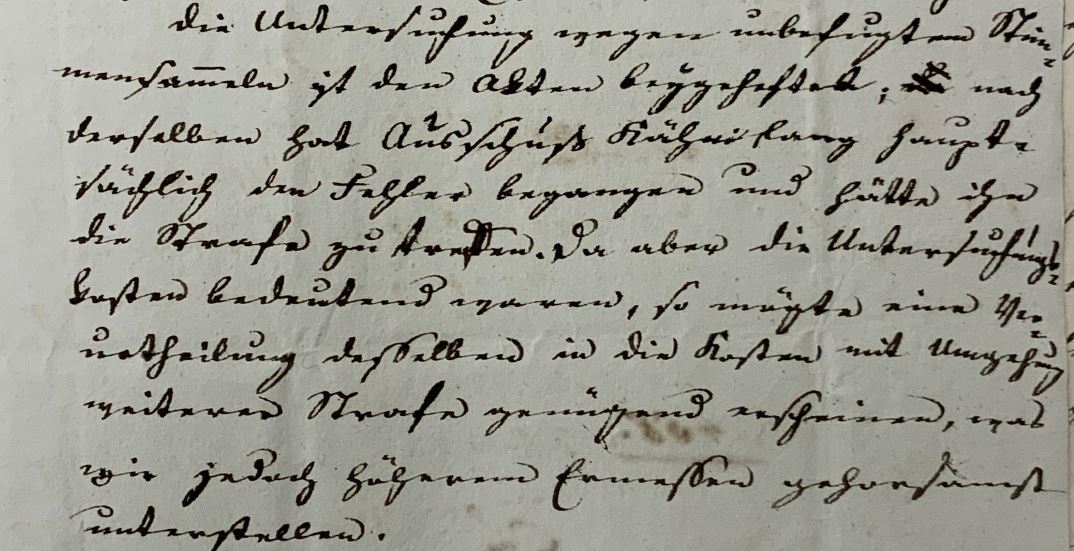 Die Untersuchung wegen unbefugtem Stim=
mensam̅eln ist den Akten beygeheftet; nach
derselben hat Ausschuß lang haupt=
sächlich den Fehler begangen und hätte ihn
die Strafe zu treffen. Da aber die Untersuchungs=
kosten bedeutend waren, so mögte eine Ver=
urtheilung desselben in die Kosten mit Umgehung
weiterer Strafe genügend erscheinen, was
wir jedoch höherem Ermessen gehorsamst
unterstellen.